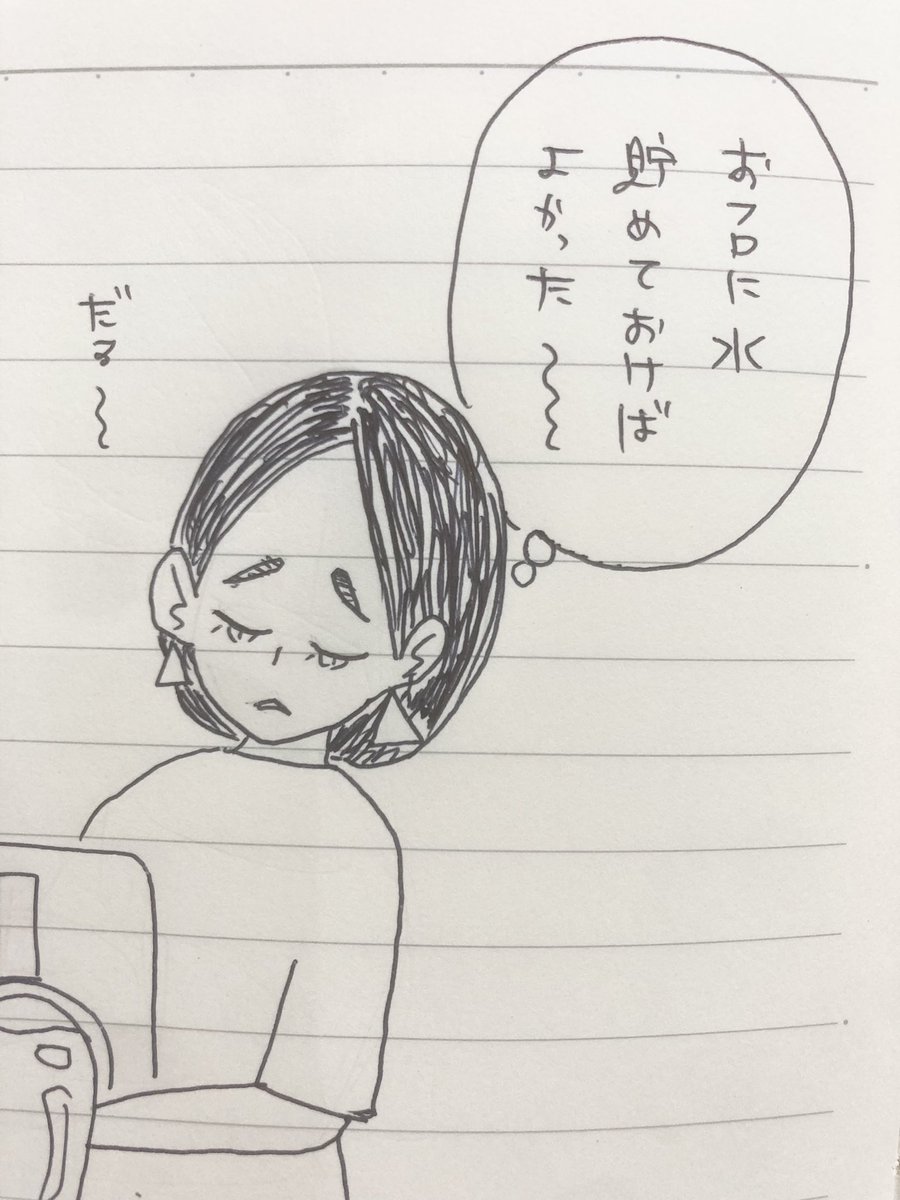 おフロに水
貯めておけば
よかった〜〜
だる〜